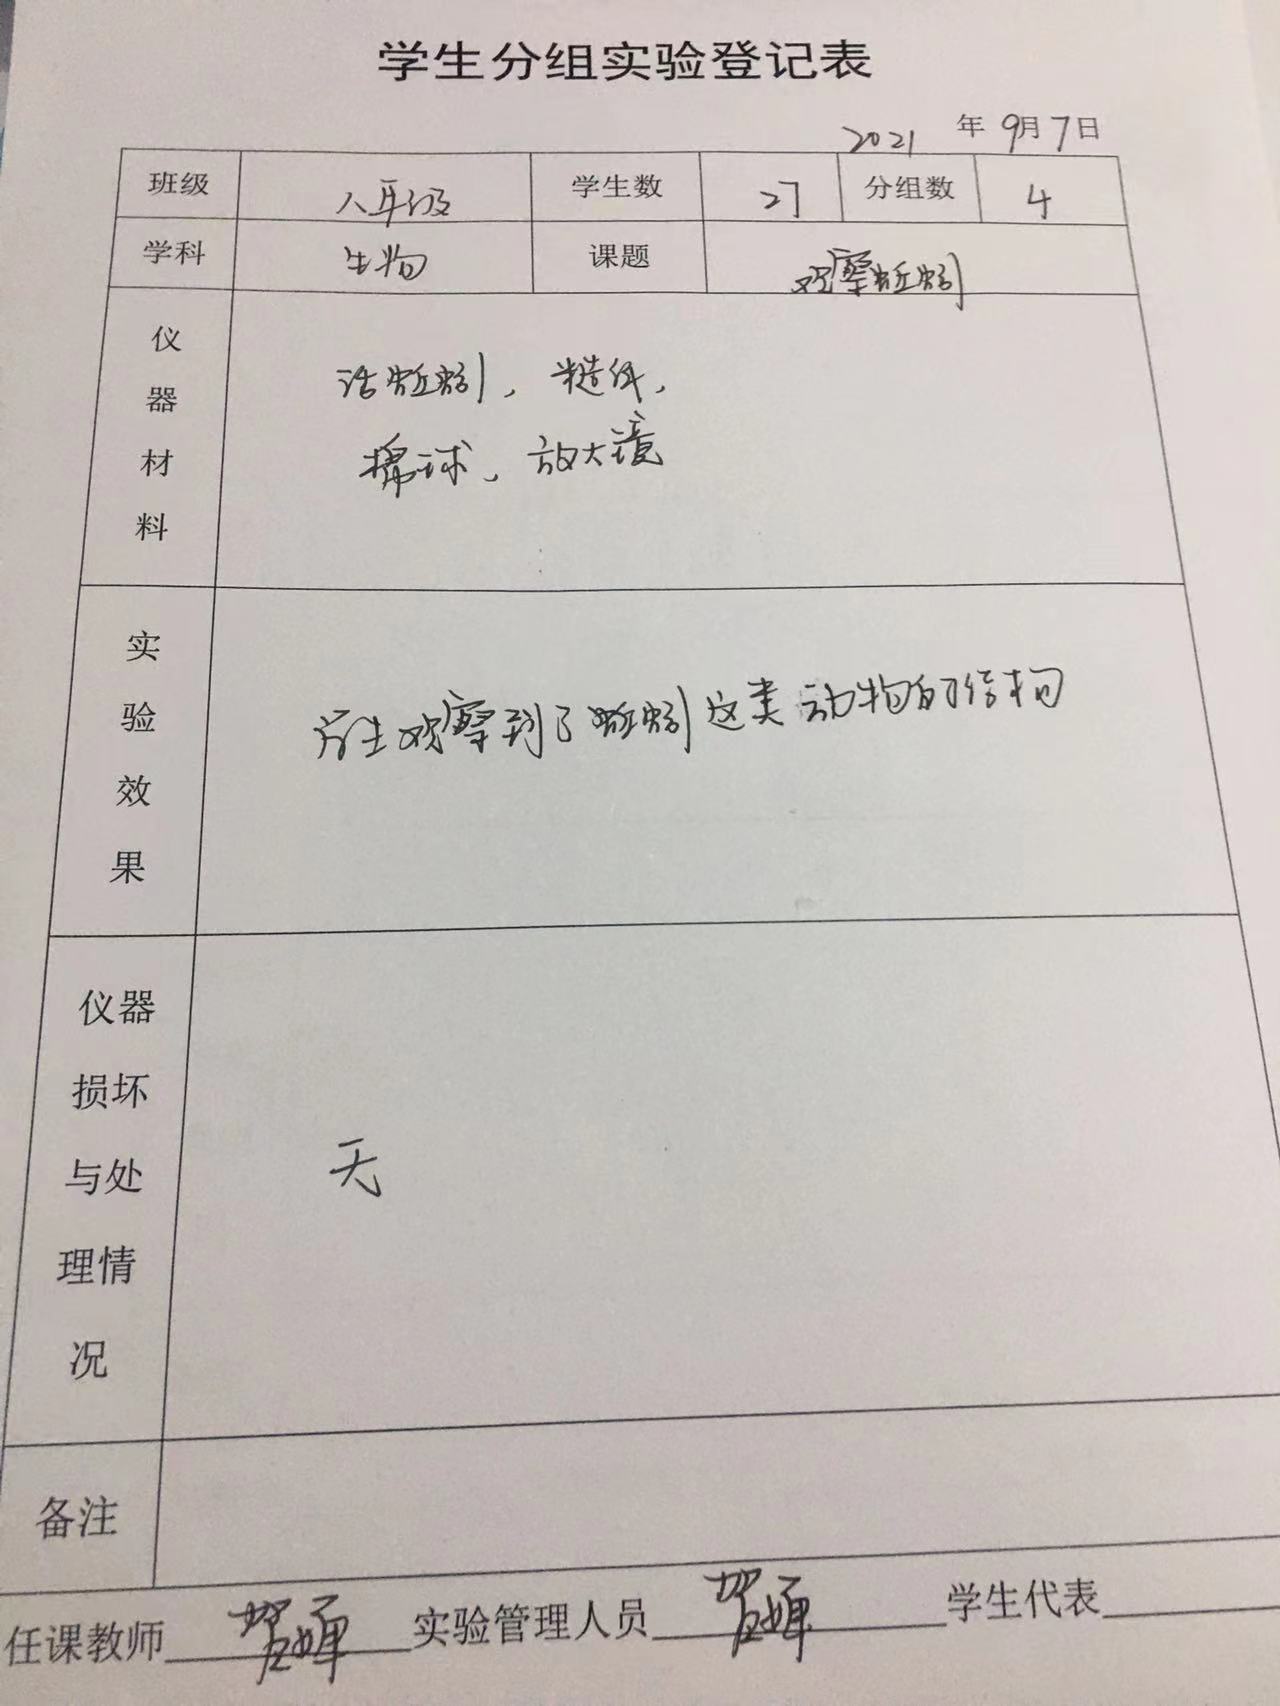 学生分组实验登记表
2021 年 9月7日
班级 八年级 学生数 27 分组数 4
学科 生物 课题 观察蚯蚓
仪器材料
活蚯蚓，糙纸，
棉球，放大镜
实验效果
学生观察到了蚯蚓这类动物的结构
仪器损坏与处理情况
无
备注
任课教师 贺婵 实验管理人员 贺婵 学生代表